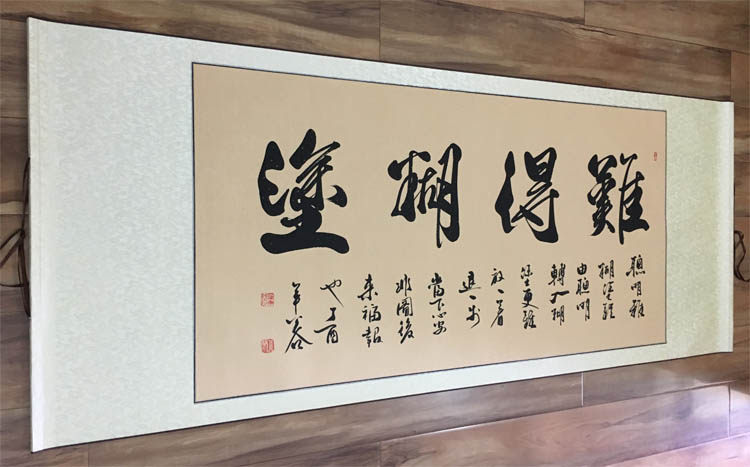 難得糊塗
聰明難
糊塗難
由聰明
轉入糊
塗更難
放一著
退一步
當下心安
非圖後
來福報
也丁酉